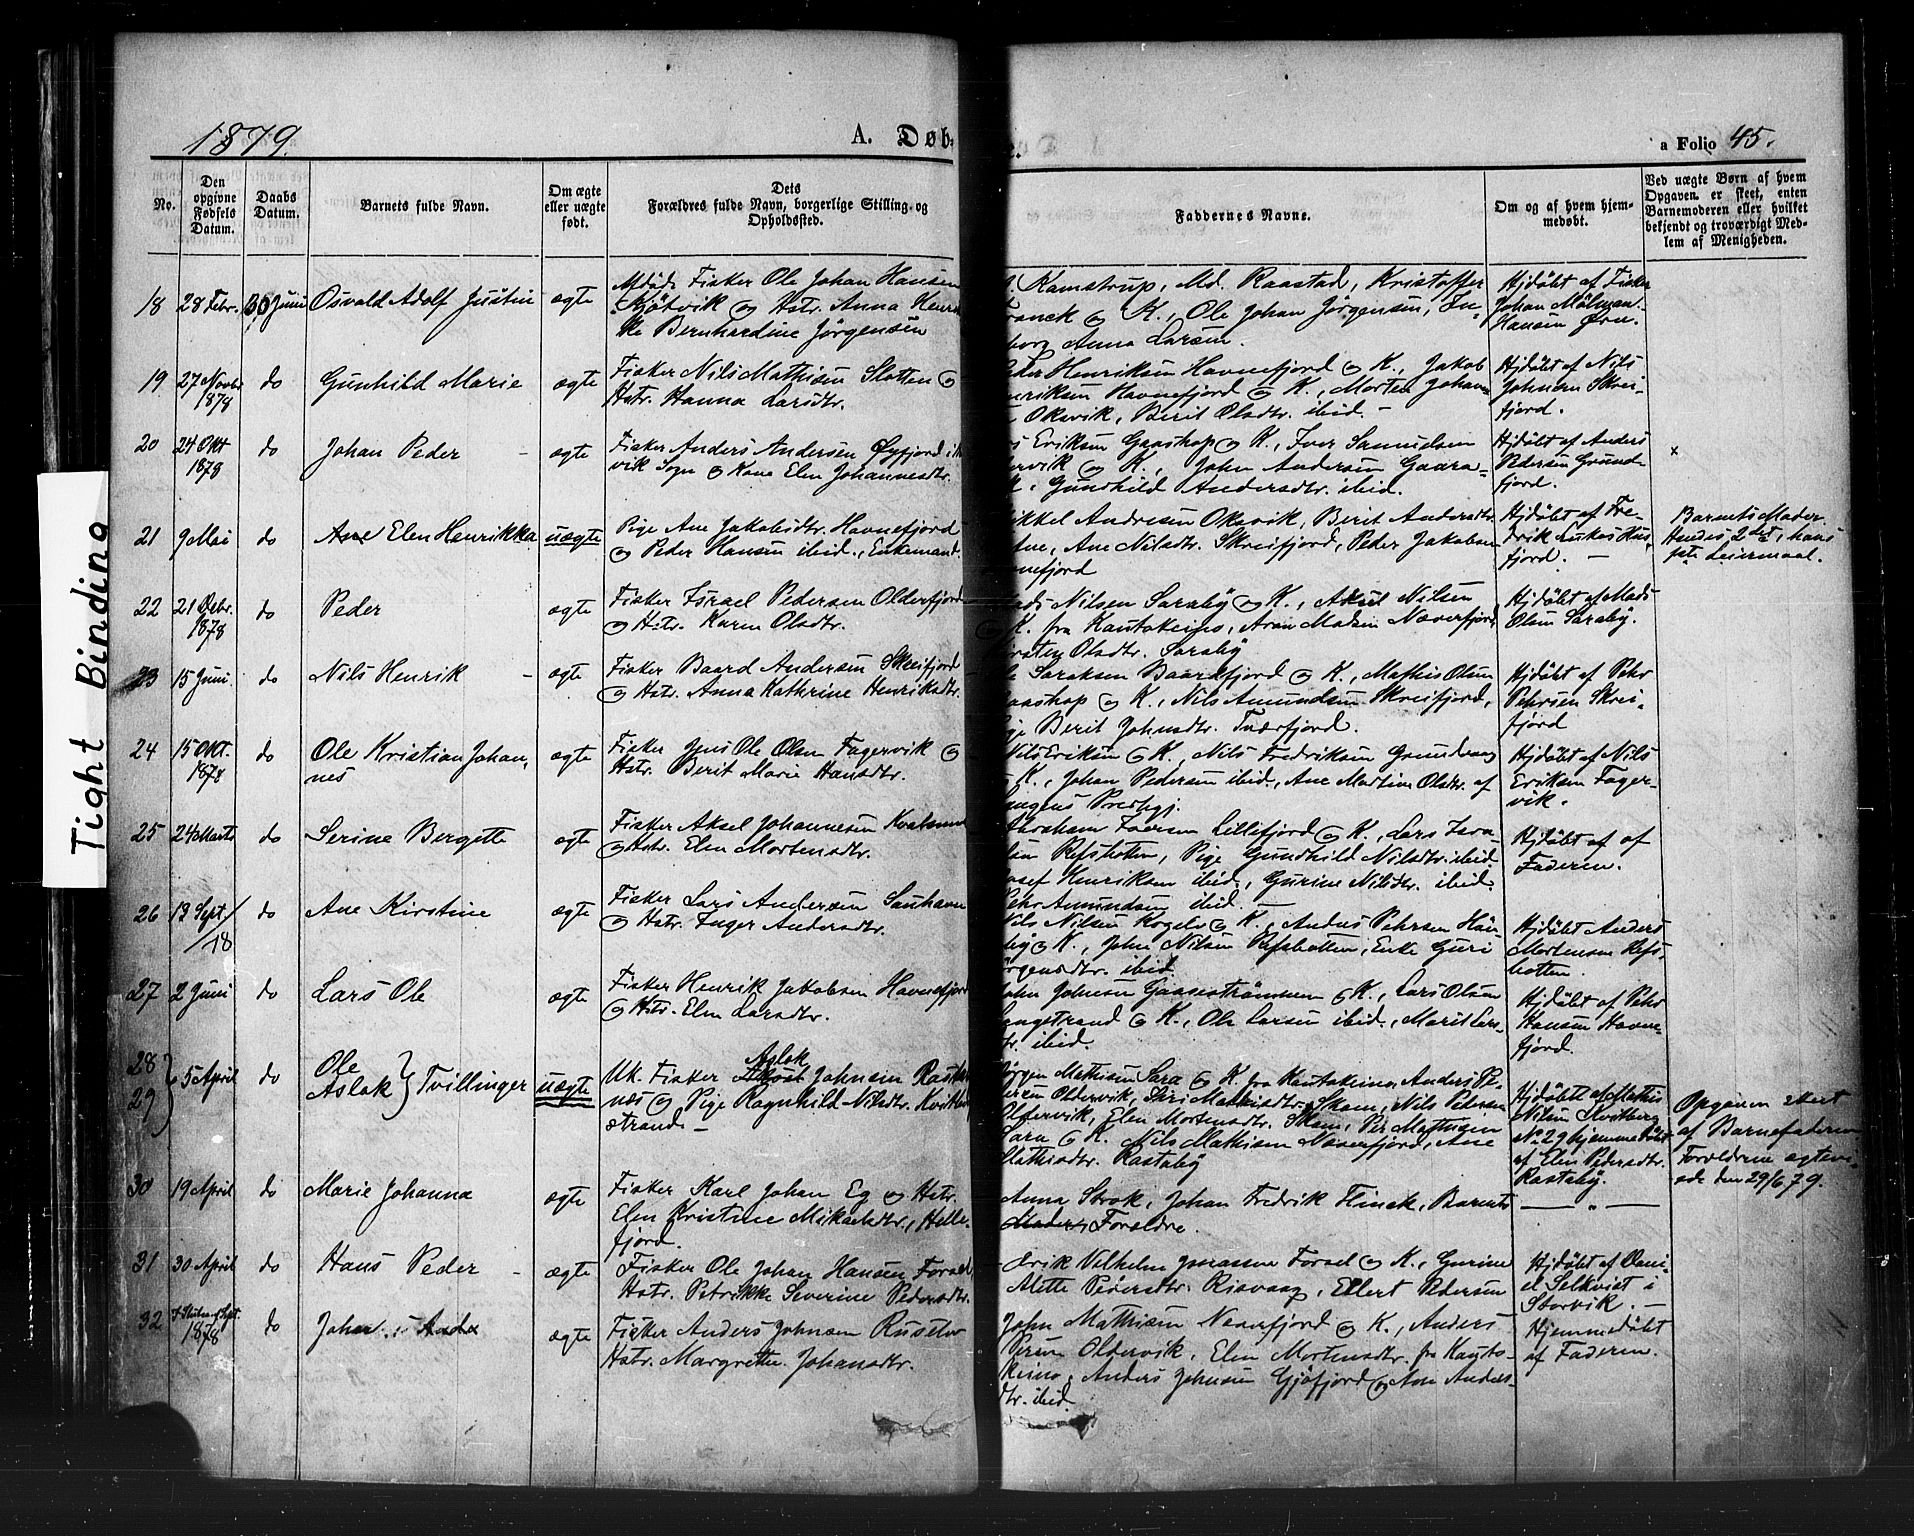 1879.
A. Døb-
e.
a Folio 45.
No.
Den opgivne Fødsels Datum.
Daabs Datum.
Barnets fulde Navn.
Om ægte eller uægte født.
Dets Forældres fulde Navn, borgerlige Stilling og Opholdssted.
Faddernes Navne.
Om og af hvem hjemmedøbt.
Ved uægte Børn af hvem Opgaven er skeet, enten Barnemoderen eller hvilket bekjendt og troværdigt Medlem af Menigheden.
Tight Binding
18 28 Febr. 30 Juni Osvald Adolf Justin ægte
Afdøde Fisker Ole Johan Hansen
Kjøtvik og Hstr. Anna Henrik
ke Bernhardine Jørgensen
Kamstrup, Md. Raastad, Kristoffer
ranck og K., Ole Johan Jørgensen, In-
borg Anna Larsen.
Hjdøbt af Fisker
Johan Mølman
Hansen Øien.
19 27 Novbr 1878 do Gunhild Marie ægte
Fisker Nils Mathisen Slotten og
Hstr. Hanna Larsdtr.
eder Henriksen Havnefjord og K., Jakob
nriksen Havnefjord og K., Morten Johan
Oksvik, Berit Olsdtr. ibid. -
Hjdøbt af Nils
Johnsen Skrei-
fjord.
20 24 Okt 1878 do Johan Peder - ægte
Fisker Anders Andersen Øyfjord i
vik Sogn og Kone Elen Johannesdtr.
s Eriksen Gaashop og K., Iver Samuelsen
ervik og K., John Andersen Gaara-
k, Gundhild Andersdtr. ibid.
Hjdøbt af Anders
Pedersen Grund-
fjord.
x
21 9 Mai do Ane Elen Henrikka uægte
Pige Ane Jakobsdtr. Havnefjord
og Peder Hansen ibid., Enkemand.
ikkel Andresen Oksvik, Berit Andersdtr
tne, Ane Nilsdtr. Skreifjord, Peder Jakobsen
vnefjord
Hjdøbt af Fre-
drik Lukas Hus-
fjord. -
Barnets Moder.
Hendes 2det, hans
1ste Leiermaal.
22 21 Debr. 1878 do Peder ægte
Fisker Israel Pedersen Olderfjord
og Hstr. Karen Olsdtr.
ads Nilsen Saraby og K., Aksel Nilsen
og K. fra Kautokeino, Aron Madsen Næverfjord,
irsten Olsdtr. Saraby
Hjdøbt af Mads
Olsen Saraby.
23 15 Juni. do Nils Henrik - ægte
Fisker Baard Andersen Skreifjord
og Hstr. Anna Kathrine Henriksdtr.
e Saraksen Baardfjord og K., Mathis Olsen
aashop og K., Nils Amundsen Skreifjord,
ige Berit Johnsdtr. Tverfjord.
Hjdøbt af Pehr
Pehrsen Skrei-
fjord
24 15 Okt. 1878 do Ole Kristian Johan-
nes ægte
Fisker Jens Ole Olsen Fagervik og
Hstr. Berit Marie Hansdtr.
Nils Eriksen og K., Nils Fredriksen Grundvaag
K., Johan Pedersen ibid., Ane Martine Olsdtr. af
angens Prestgj.
Hjdøbt af Nils
Eriksen Fager-
vik.
25 24 Marts do Serine Bergette ægte
Fisker Aksel Johannesen Kvalsund
og Hstr. Elen Mortensdtr.
Abraham Iversen Lillefjord og K., Lars Isra-
lsen Refsbotten, Pige Gundhild Nilsdtr. ibid.
osef Henriksen ibid., Gurine Nilsdtr. ibid.
Pehr Amundsen ibid. -
Hjdøbt af af
Faderen.
26 13 Sept/18 do Ane Kirstine ægte
Fisker Lars Andersen Sauhavn
og Hstr. Inger Andersdtr.
Nils Nilsen Kogelv og K., Anders Pehrsen Hän-
by og K., John Nilsen Refsbotten, Enke Guri
ørgensdtr. ibid.
Hjdøbt Anders
Mortensen Refs-
botten.
27 2 Juni do Lars Ole ægte
Fisker Henrik Jakobsen Havnefjord
og Hstr. Elen Larsdtr.
ohn Johnsen Gaasestrømmen og K., Lars Olsen
Langstrand og K., Ole Larsen ibid., Marit Lars-
tr. ibid.
Hjdøbt af Pehr
Hansen Havne-
fjord.
28 29 } 5 April do Ole
Aslak } Tvillinger uægte
Aslak
Uk. Fisker Johnsen Rast
næs og Pige Ragnhild Nilsdtr. Kvitbe
strand. -
Jørgen Mathisen Sara og K. fra Kautokeino, Anders Pe-
Oldervik, Siri Mathisdtr. Skam, Nils Pedersen
Oldervik, Elen Mortensdtr. Skam, Per Mathisen
Sara og K. Nils Mathisen Næverfjord, Ane
Mathisdtr. Rastaby
Hjdøbt af Mathis
Nilsen Kvitberg
No 29 hjemmedøbt
af Elen Pedersdtr.
Rastaby.
Opgaven skeet
af Barnefaderen
Forældrene ægtevi-
ede den 29/6 79.
30 19 April do Marie Johanna ægte
Fisker Karl Johan Eg og Hstr.
Elen Kristine Mikaelsdtr., Hille-
fjord.
Anna Strok, Johan Fredrik Flinck, Barnets
Moder, Forældre.
— „ —
31 30 April do Hans Peder - ægte
Fisker Ole Johan Hansen Forsøl
Hstr. Petrikke Severine Pedersdtr.
Erik Vilhelm Jonassen Forsøl og K., Gurine
Mette Pedersdtr. Risvaag, Ellert Pedersen
Hjdøbt af Dani-
el Selkvist i
Storvik. -
32 1878 do Johan ægte
Fisker Anders Johnsen Russelv
Hstr. Margrethe Johansdtr.
John Mathisen Neverfjord og K., Anders
Persen Oldervik, Elen Mortensdtr. fra Kauto-
keino, Anders Johnsen Gjøfjord og Ane Anders-
dtr. ibid.
Hjemmedøbt
af Faderen.